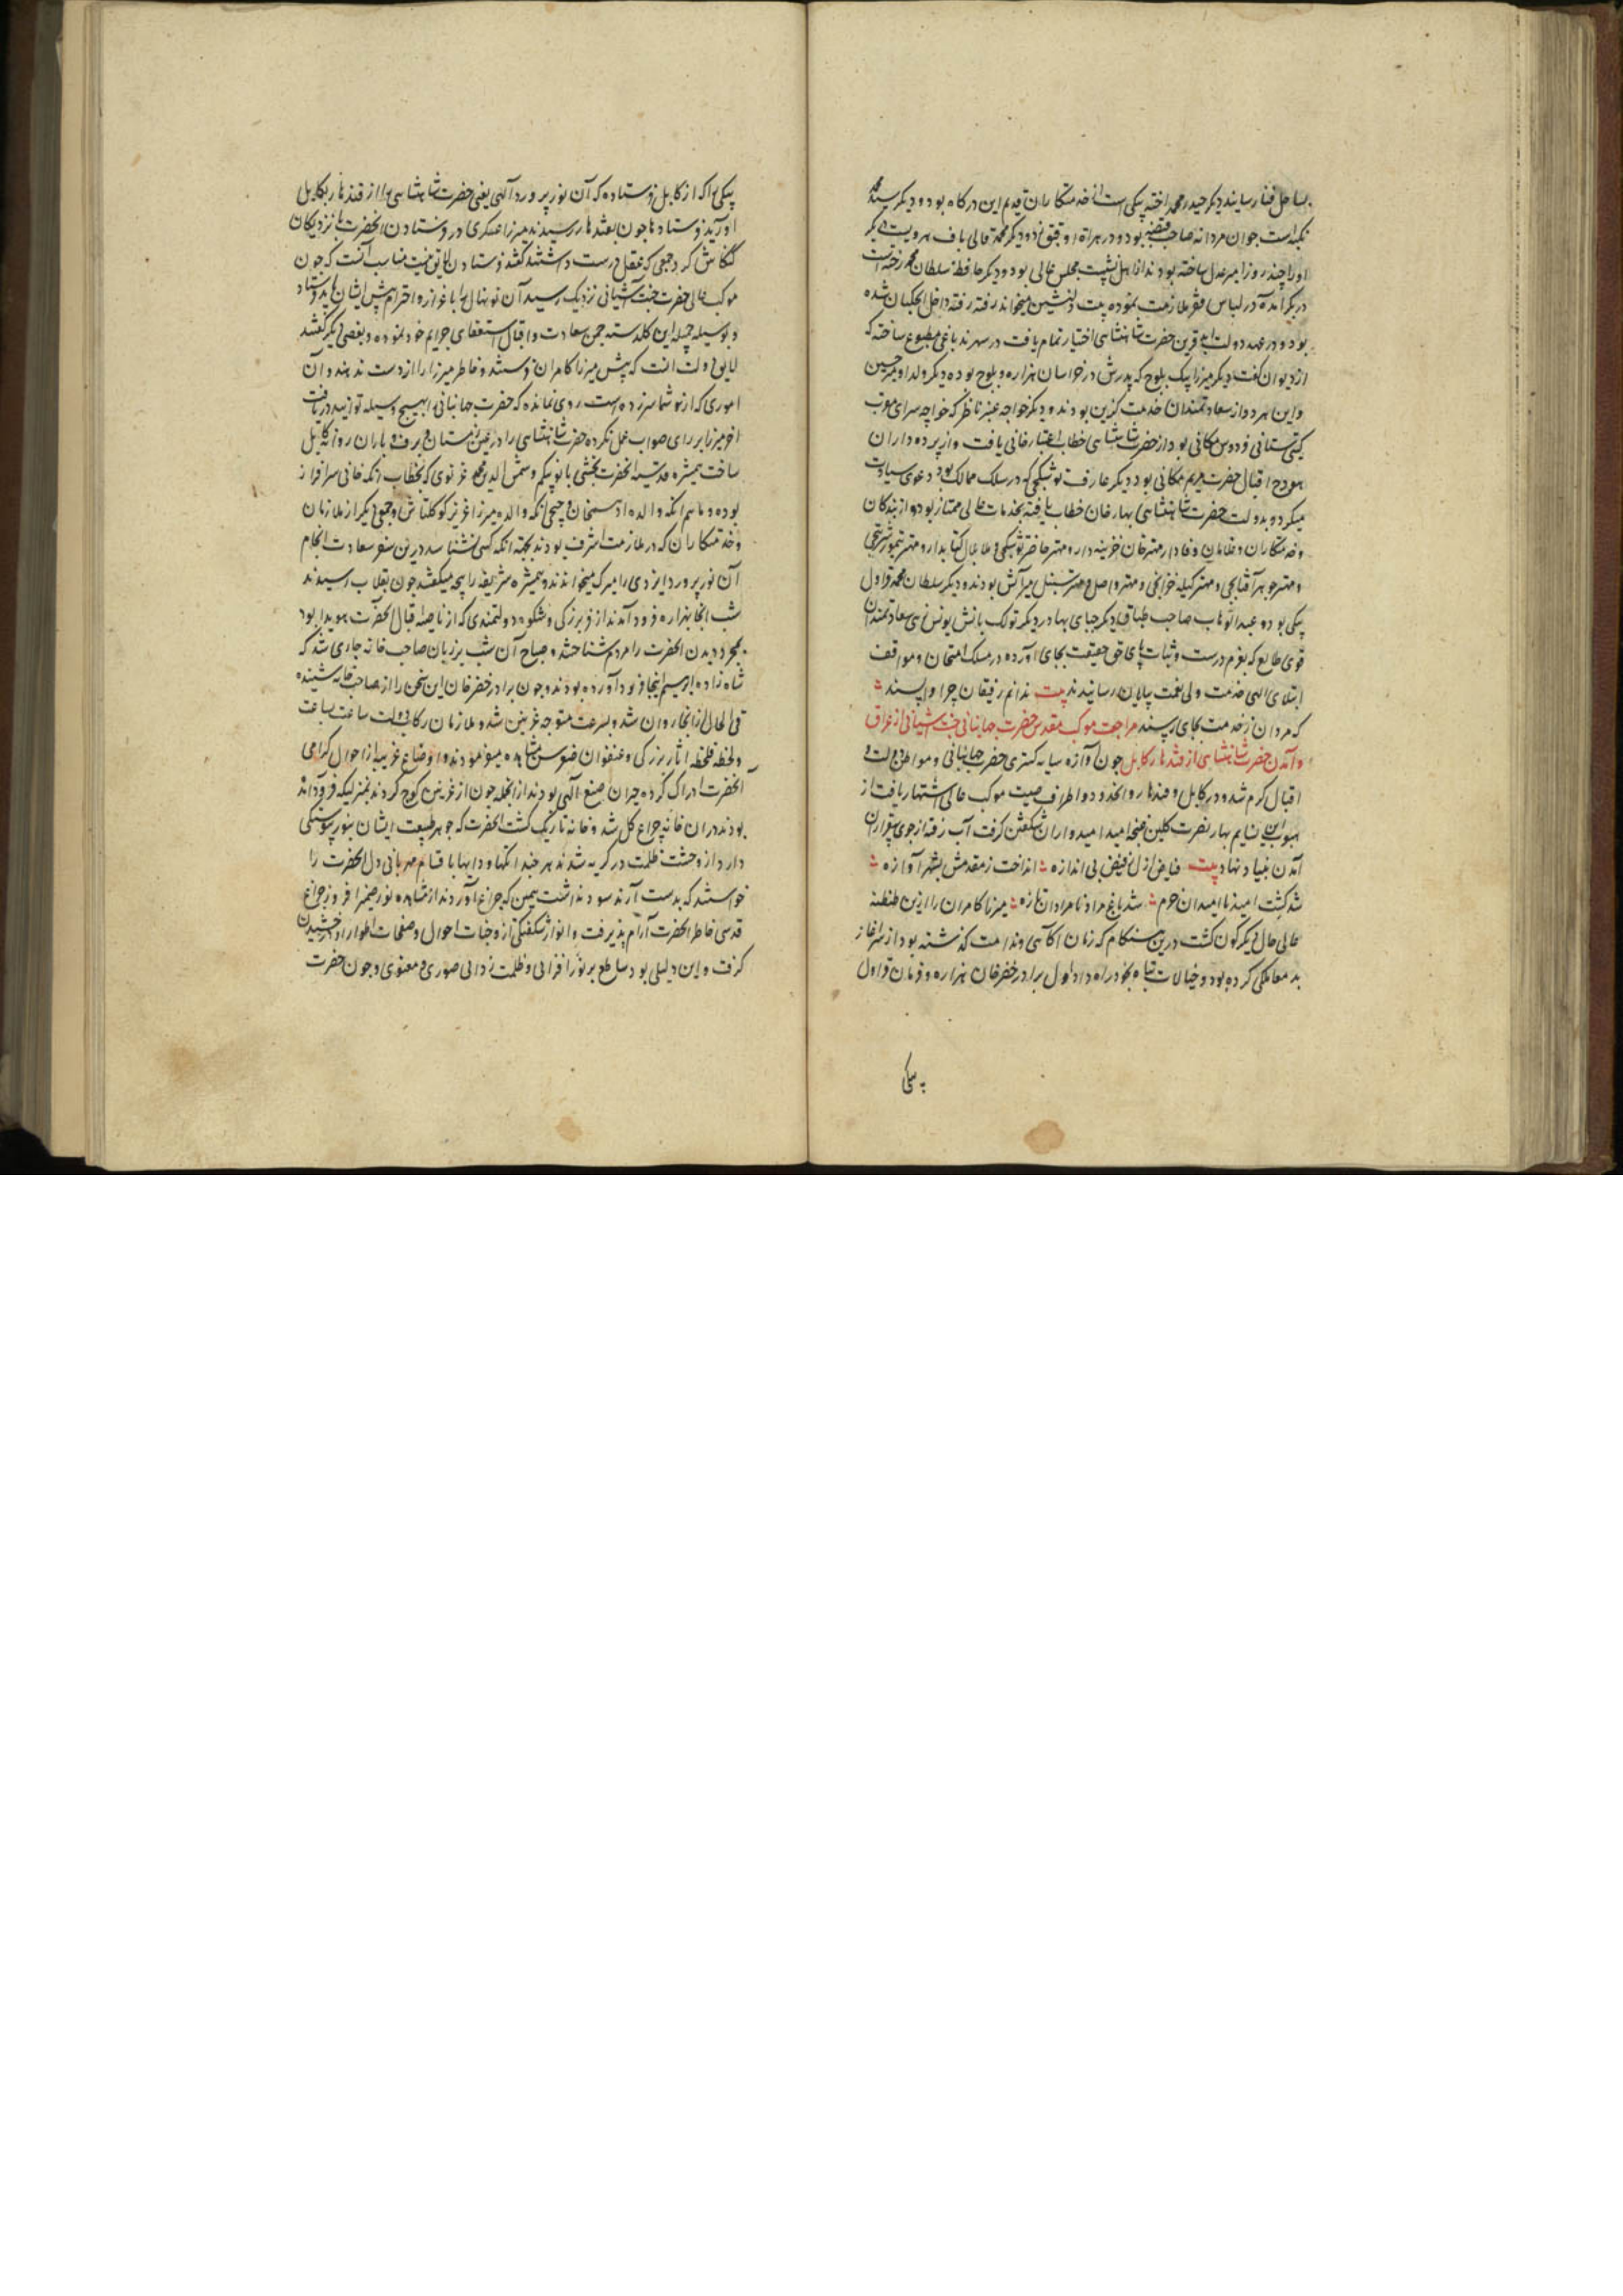 بساحل فنا رسانید دیکر حیدر محمد اخته بیکی است از خدمتکاران قدیم این درکاه بود و دیکر سید محمد
پکنه است جوان مردانه صاحب قبضه بود و در هراة او قبق زد و دیکر محمد قالی باف هرویست دیکر
اورا چند روز امیر عدل ساخته بودند از اهل نشست مجلس عالی بود و دیکر حافظ سلطان محمد رخنه است
در بکر آمده در لباس فقر ملازمت نموده بیت دلنشین میخواند رفته رفته داخل ایچکیان شده
بود و در عهد دولت ابد قرین حضرت شاهنشاهی اختیار تمام یافت در سهرند باغی مطبوع ساخته که
از دیوان کفت دیکر میرزا بیک بلوج که پدرش در خراسان هزاره و بلوج بوده دیکر ولد او میر حسین
و این هر دو از سعادتمندان خدمت کزین بودند و دیکر خواجه عنبر ناظر که خواجه سرای مقرب
کیتی ستانی فردوس مکانی بود از حضرت شاهنشاهی خطاب اعتبار خانی یافت و از پرده داران
هودج اقبال حضرت مریم مکانی بود دیکر عارف توشکچی که در سلک ممالک بود دعوی سیادت
میکرد و بدولت حضرت شاهنشاهی بهار خان خطاب یافته بخدمات عالی ممتاز بود و از بندکان
و خدمتکاران و غلامان وفادار مهتر خان خزینه دار و مهتر فاخر توشکچی و ملا بلال کتابدار و مهتر تیمور شربتچی
و مهتر جوهر آفتابچی و مهتر وکیله خزانچی و مهتر واصل و مهتر سنبل میرآتش بودند و دیکر سلطان محمد قراول
بیکی بود و عبدالوهاب صاحب طباق دیکر جبای بهادر دیکر تولک یاتش یونس زهی سعادتمندان
قوی طالع که بعزم درست و ثبات پای حق حقیقت بجای آورده در مسلک امتحان و مواقف
ابتلای الهی خدمت ولی نعمت بپایان رسانیدند بیت ندانم رفیقان چرا واپسند
که مردان ز خدمت بجای رسند مراجعت موکب مقدس حضرت جهانبانی جنت آشیانی از عراق
و آمدن حضرت شاهنشاهی از قندهار بکابل چون آوازه سایه کستری حضرت جهانبانی و مواطن دولت و
اقبال کرم شد و در کابل و قندهار و آنحدود و اطراف صیت موکب عالی اشتهار یافت از
هبوب این نسایم بهار نصرت کلبن غنچه امید امیدواران شکفتن کرفت آب رفته از جوی بیقراران
آمدن بنیاد نهاد بیت فیاض ازل ز فیض بی اندازه انداخت ز مقدمش بشهر آوازه
شد کشت امید ناامیدان خرم شد باغ مراد نامرادان تازه میرزا کامران را ازین طنطنه
عالی حال دیکر کون کشت درین هنکام که زمان آکاهی و ندامت کذشته بود از سر آغاز
بد معاملکی کرده بود و خیالات تباه بخود راه داد اول برادر خضر خان هزاره و قربان قراول
بیکی
بیکی را که از کابل فرستاده که آن نور پرورد آلهی یعنی حضرت شاهنشاهی را از قندهار بکابل
آورید فرستادها چون بقندهار رسیدند میرزا عسکری در فرستادن آنحضرت با نزدیکان
کنکاش کرد جمعی که عقل درست داشتند کفتند فرستادن لایق نیست مناسب آنست که چون
موکب عالی حضرت جنت آشیانی نزدیک رسید آن نونهال را باعزاز و احترام پیش ایشان باید فرستاد
و بوسیله جمیله این کلدسته چمن سعادت و اقبال استعفای جرایم خود نموده و بعضی دیکر کفتند
لایق دولت آنست که پیش میرزا کامران فرستند و خاطر میرزا را از دست ندهند و آن
اموری که از تو شما سر زده است روی نمانده که حضرت جهانبانی را بهیچ وسیله توانید دریافت
آخر میرزا بر رای صواب عمل نکرده حضرت شاهنشاهی را در عین زمستان و برف و باران روانه کابل
ساخت همشیره قدسیه آنحضرت بخشی بانو بیکم و شمس الدین محمد غزنوی که بخطاب اتکه خانی سرافراز
بوده و ماهم انکه والده ادهم خان و جیجی انکه والده میرزا عزیز کوکلتاش و جمعی دیکر از ملازمان
و خدمتکاران که در ملازمت اشرف بودند بجهته آنکه کسی نشناسد درین سفر سعادت انجام
آن نور پرورد ایزدی را میرک میخواندند و همشیره شریفه را بیچه میکفتند چون بقلات رسیدند
شب آنجا بهزاره فرود آمدند از فر بزرکی و شکوه دولتمندی که از ناصیه اقبال آنحضرت هویدا بود
بمجرد دیدن آنحضرت را مردم شناختند و صباح آن شب بر زبان صاحب خانه جاری شد که
شاه زاده را بر سم اینجا فرود آورده بودند و چون برادر خضر خان این سخن را از صاحب خانه شنیده
فی الحال از آنجا روان شد و بسرعت متوجه غزنین شد و ملازمان رکاب دولت ساعت بساعت
و لحظه فلحظه آثار بزرکی و عنفوان صغر سن مشاهده مینمودند و اوضاع غریبه از احوال کرامی
آنحضرت ادراک کرده حیران صنع آلهی بودند از آنجمله چون از غزنین کوچ کردند بمنزلیکه فرود آمده
بودند در ان خانه چراغ کل شد و خانه تاریک کشت آنحضرت که جوهر طبیعت ایشان بنور پیوستکی
دارد از وحشت ظلمت در کریه شدند هر چند انکها و دایها باقسام مهربانی دل آنحضرت را
خواستند که بدست آرند سود نداشت همین که چراغ آوردند از مشاهده نور ضمیر افروز چراغ
قدسی خاطر آنحضرت آرام پذیرفت و انوار شکفتکی از وجنات احوال و صفحات اطوار او درخشیدن
کرفت و این دلیلی بود ساطع بر نور افزایی و ظلمت زدایی صوری و معنوی و چون حضرت